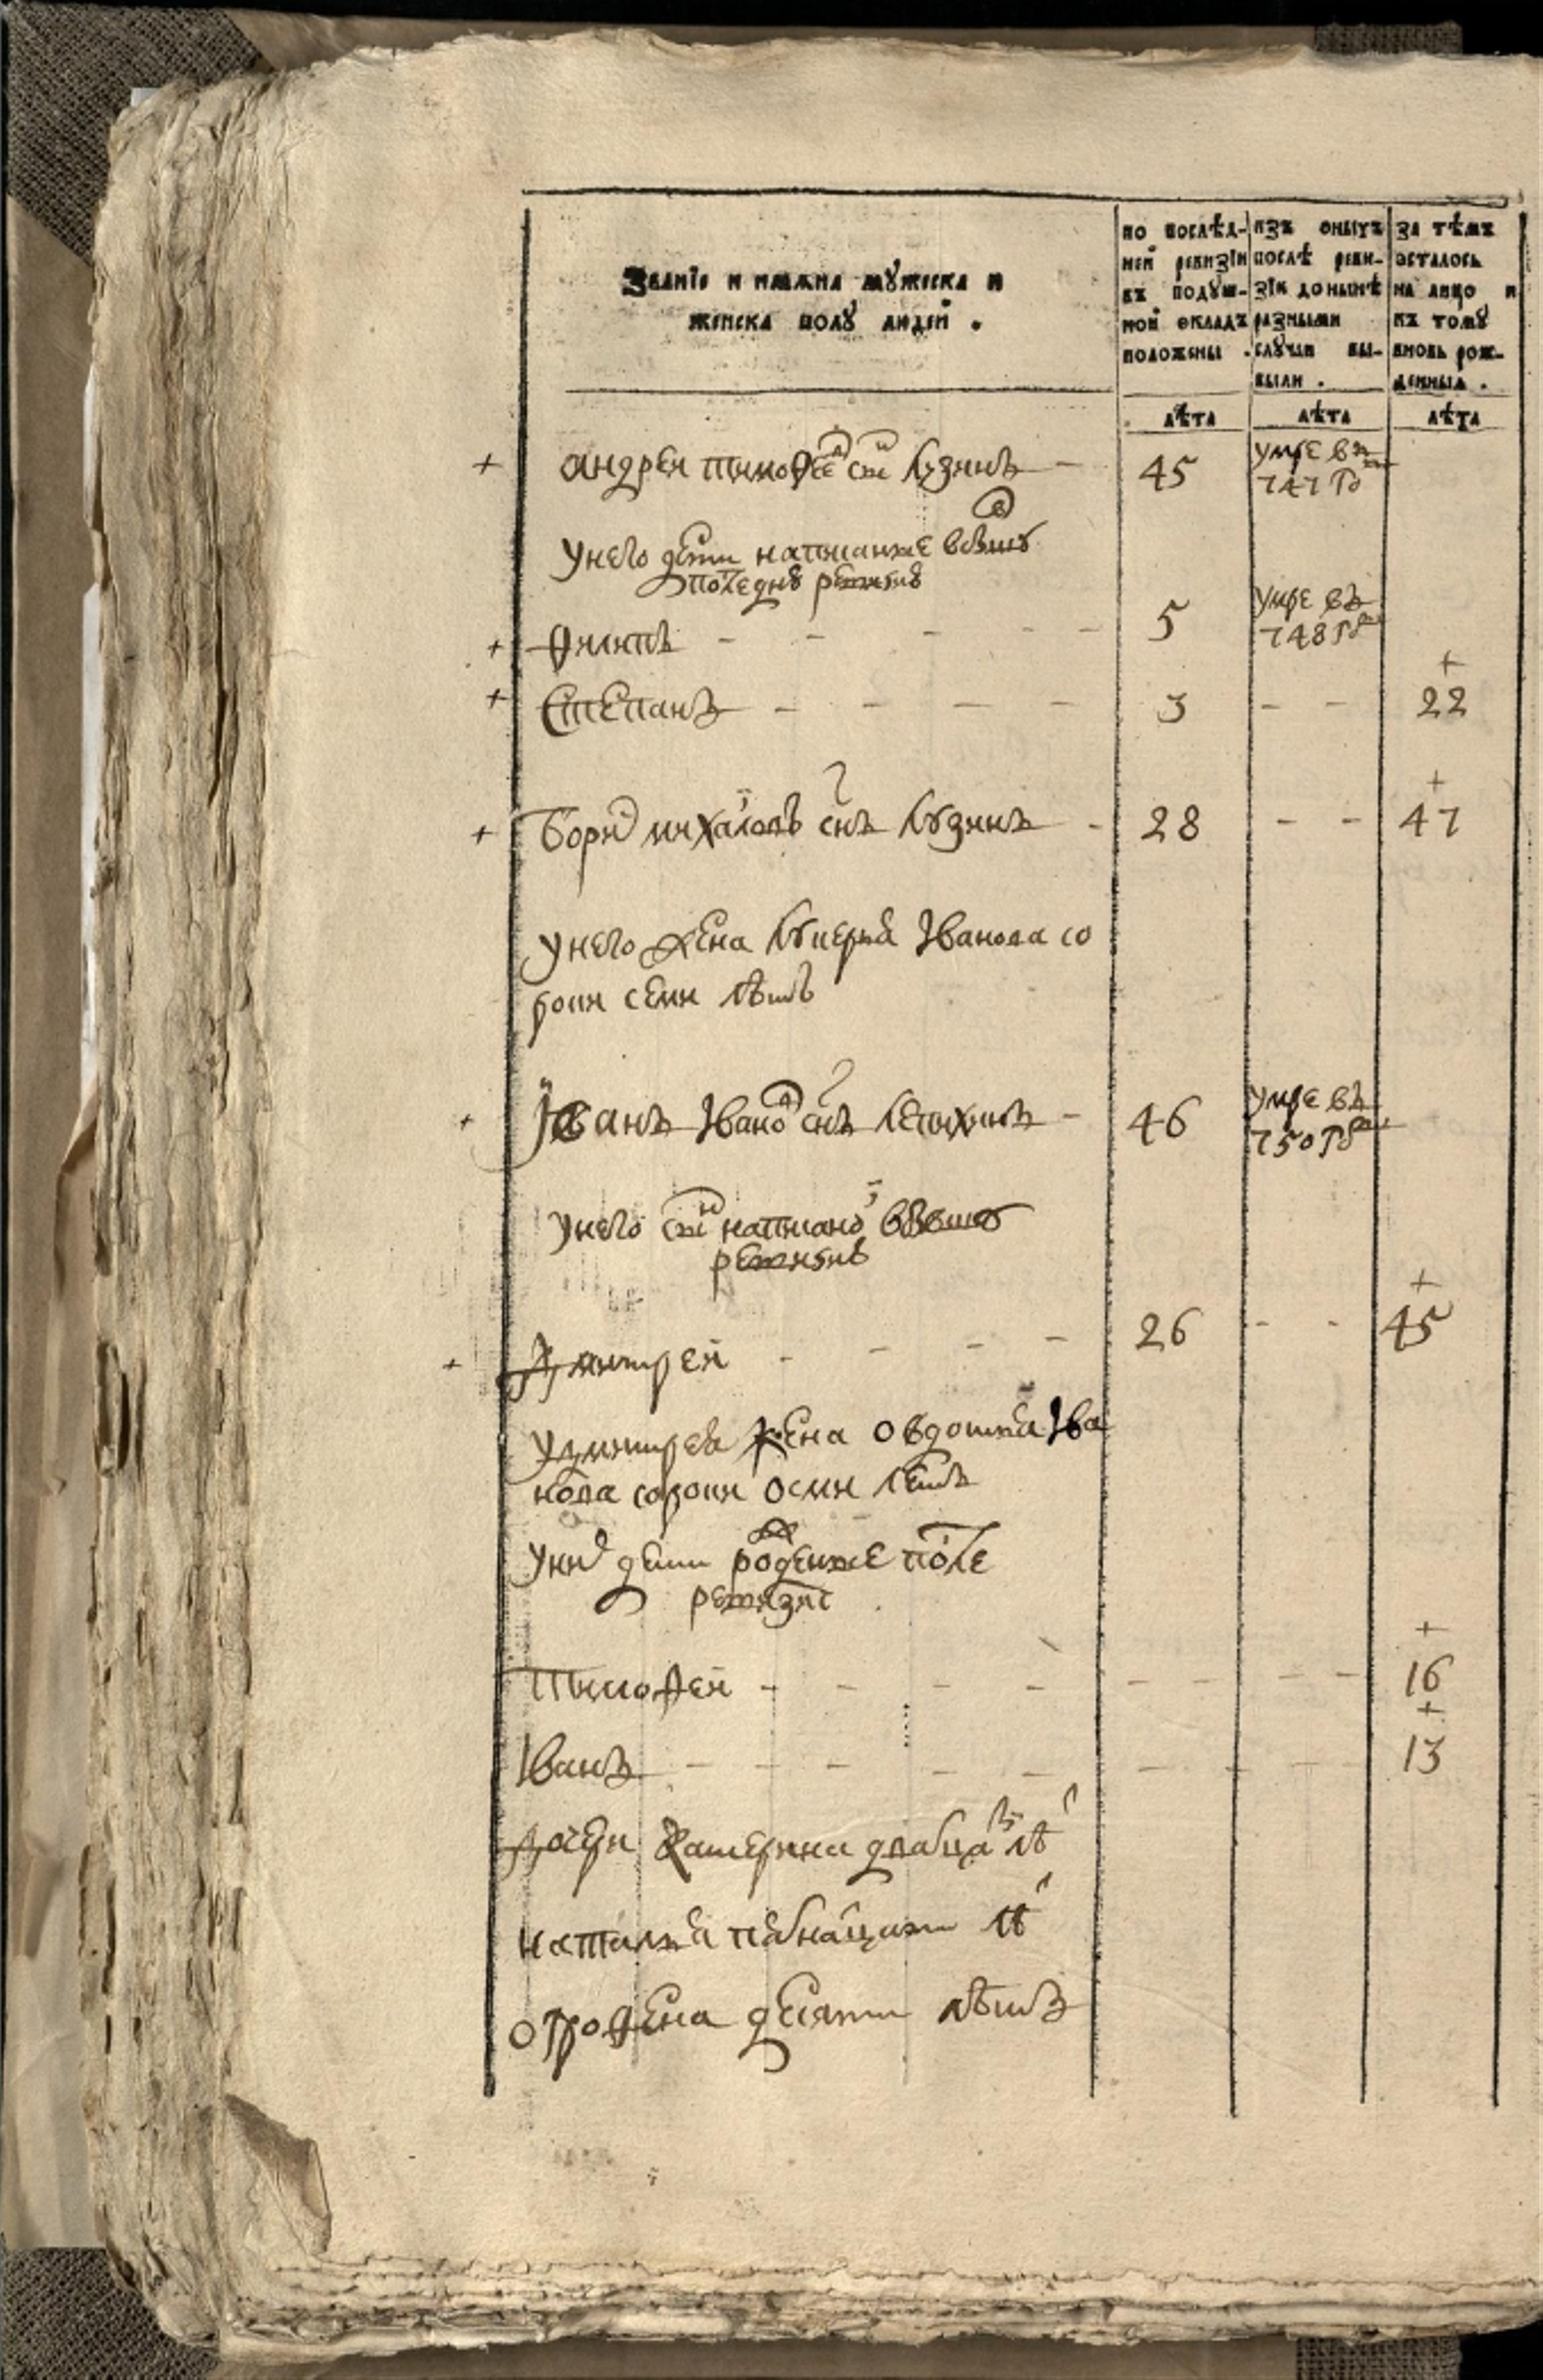 Званїе и имяна мꙋжеска и
женска полꙋ людей .
по послѣд-
ней ревизїи
въ подꙋш-
ной окладъ
положены .
изъ оныхъ
послѣ реви-
зїи до нынѣ
разными
слꙋчаи вы-
были .
за тѣмъ
осталось
на лицо и
къ томꙋ
вновь рож-
денныя .
лѣта лѣта лѣта
+ андреи тимофеевъ снъ кузминъ 45 умре въ
747 го
Унего дети написанные
последнюю ревизию
+ Филипъ - - - - 5 умре въ
748 го
+ Степанъ - - - - 3 - - + 22
+ Борис михаиловъ снъ кузминъ - 28 - - + 47
Унего жена лукерья Iванова со
роки семи лѣтъ
+ Iванъ Iвановъ снъ - 46 умре въ
750 го
Унего снъ написаной в бывшую
ревизию
+ Дмитреи - - - - 26 - - + 45
Удмитрея жена овдотья Iва
нова сороки осми летъ
Уних дети рожденые после
ревизии
Тимофеи - - - - - - - + 16
Iванъ - - - - - - - + 13
Дочери Катерина дватцати лѣ
наталья пятнатцати лѣ
офрофена десяти лѣтъ